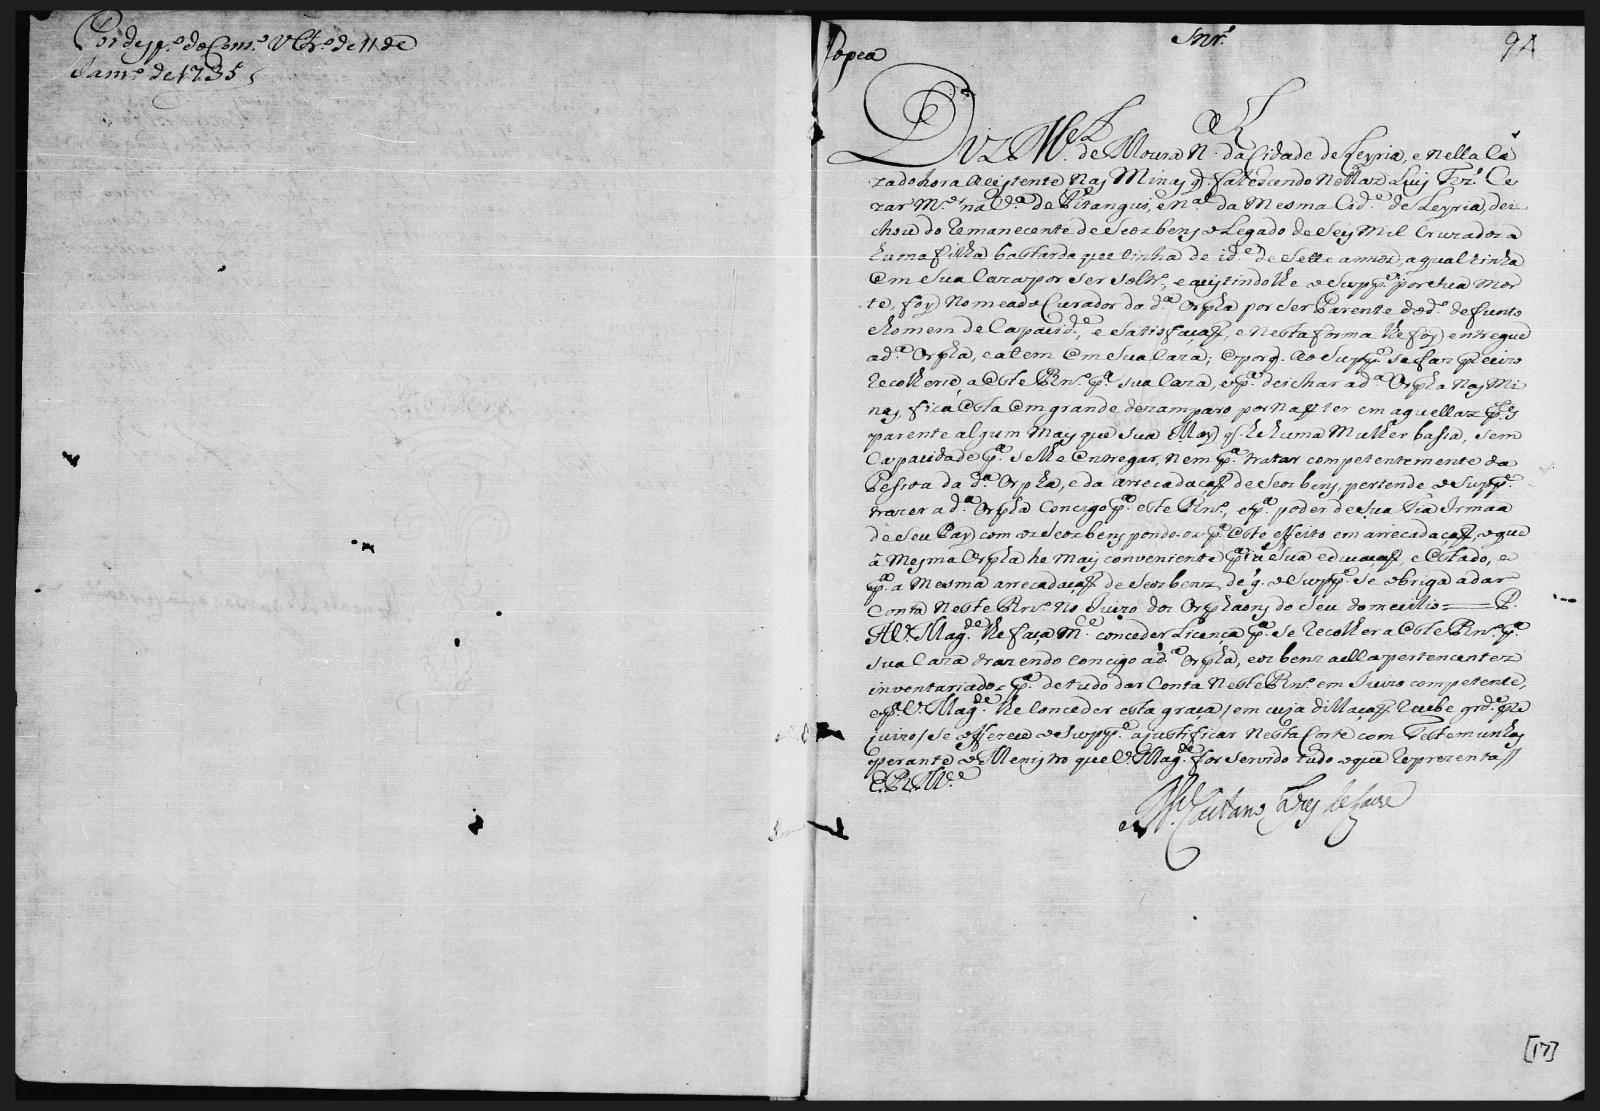 Por desp.º do Cons.º Ultr.º de 11 de
Jan.ro de 1735
Snr.
Copea
9A
Diz M.el de Moura N. da Cidade de Leyria, e nella Ca
zado hora acistente nas Minas q. falescendo nellaz Luis Fez. Ce
zar M.or na V.a de Pitangui, e n.al da Mesma Cid.e de Leyria, dei
chou do Remanecente de Seoz bens o Legado de Seis Mil Cruzados a
huma filha bastarda que tinha de id.e de Sette annoz, a qual tinha
Em Sua Caza por Ser Solt.ro, e acistindolhe o Supp.e por Sua Mor
te, foy Nomeado Curador da d.a Orpha por Ser Parente do d.º defunto
e homem de Capacid.e, e Satisfaçaõ, e nesta forma lhe foy entregue
a d.a Orpha, e a tem Em Sua Caza; e porq. ao Supp.e Se faz preciso
Recolherce a Este Rn.º p.a Sua Caza, e p.a deichar a d.a Orpha nas Mi
nas, fica Esta Em grande dezamparo por naõ ter em aquellaz p.es
parente algum mais que Sua May q. he huma Mulher baffa, Sem
Capacidade p.a Se lhe Entregar, nem p.a tratar competentemente da
Peffoa da d.a Orpha, e da arrecadaçaõ de Seos bens, pertende o Supp.e
trazer a d.a Orpha Concigo p.a este Rn.º, e p.a poder de Sua Tia Irmaã
de Seu Pay com oz Seoz bens pondo-oz p.a Este effeito em arrecadaçaõ, o que
â Mesma Orpha he Mais conveniente p.a a Sua educaçaõ, e Estado, e
p.a a Mesma arrecadaçaõ de Seoz benz, de q. o Supp.e Se obriga a dar
Conta Neste Rn.º No Juizo dos Orphaons do Seu domecilio = P.
A V. Mag.de lhe faça m.ce conceder Licença p.a Se Recolher a Este Rn.º p.a
Sua Caza trazendo Concigo a d.a Orpha, e oz benz a ella pertencentez
inventariadoz p.a de tudo dar Conta Neste Rn.º em Juizo competente,
e p.a V. Mag.de lhe Conceder esta graça / em cuja dillaçaõ Recebe grd.e pre
juizo / Se offerece o Supp.e a justificar Nesta Corte com Testemunhas
perante o Menistro que V. Mag.de for Servido tudo o que Reprezenta //
E. R. M.ce
M.el Caetano
[17]